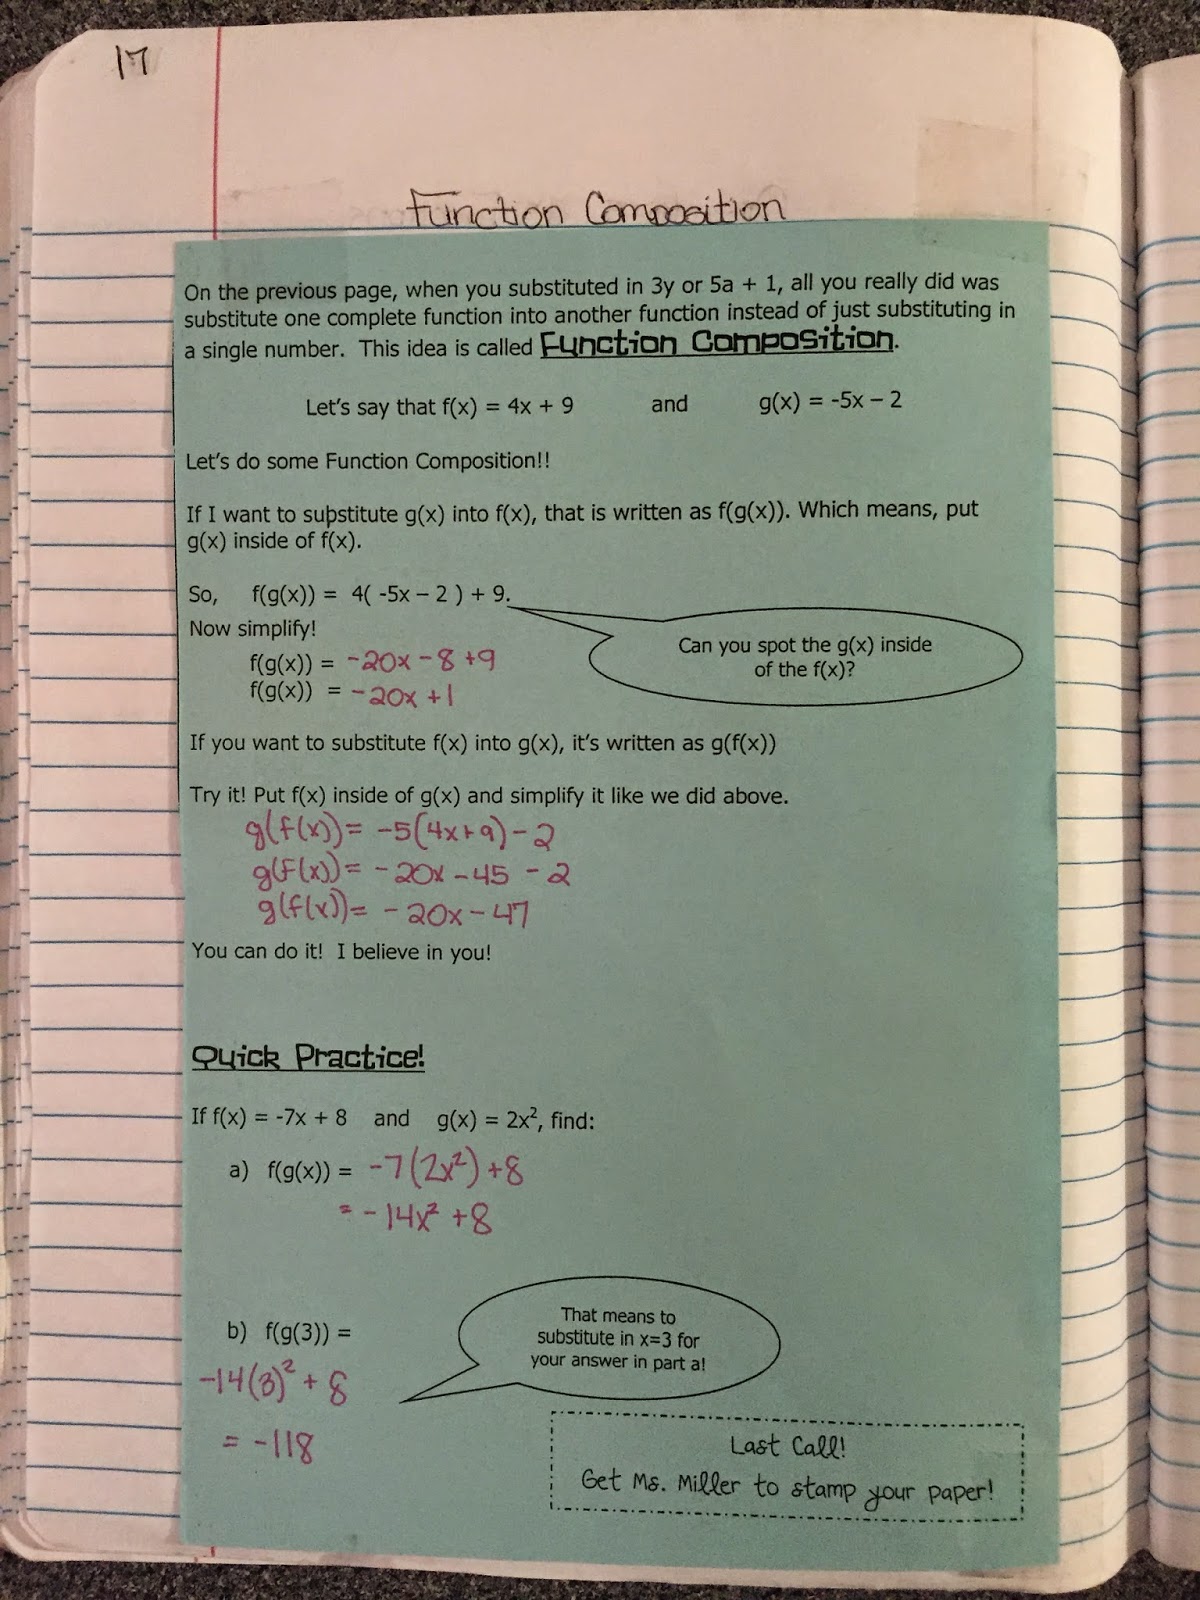 17
Function Composition
On the previous page, when you substituted in 3y or 5a + 1, all you really did was
substitute one complete function into another function instead of just substituting in
a single number. This idea is called Function Composition.
Let's say that f(x) = 4x + 9 and g(x) = -5x – 2
Let's do some Function Composition!!
If I want to substitute g(x) into f(x), that is written as f(g(x)). Which means, put
g(x) inside of f(x).
So, f(g(x)) = 4( -5x – 2 ) + 9.
Now simplify!
f(g(x)) = -20x - 8 + 9
f(g(x)) = -20x + 1
Can you spot the g(x) inside
of the f(x)?
If you want to substitute f(x) into g(x), it's written as g(f(x))
Try it! Put f(x) inside of g(x) and simplify it like we did above.
g(f(x)) = -5(4x+9) - 2
g(f(x)) = -20x - 45 - 2
g(f(x)) = -20x - 47
You can do it! I believe in you!
Quick Practice!
If f(x) = -7x + 8 and g(x) = 2x², find:
a) f(g(x)) = -7(2x²) + 8
= -14x² + 8
b) f(g(3)) =
-14(3)² + 8
= -118
That means to
substitute in x=3 for
your answer in part a!
Last Call!
Get Ms. Miller to stamp your paper!